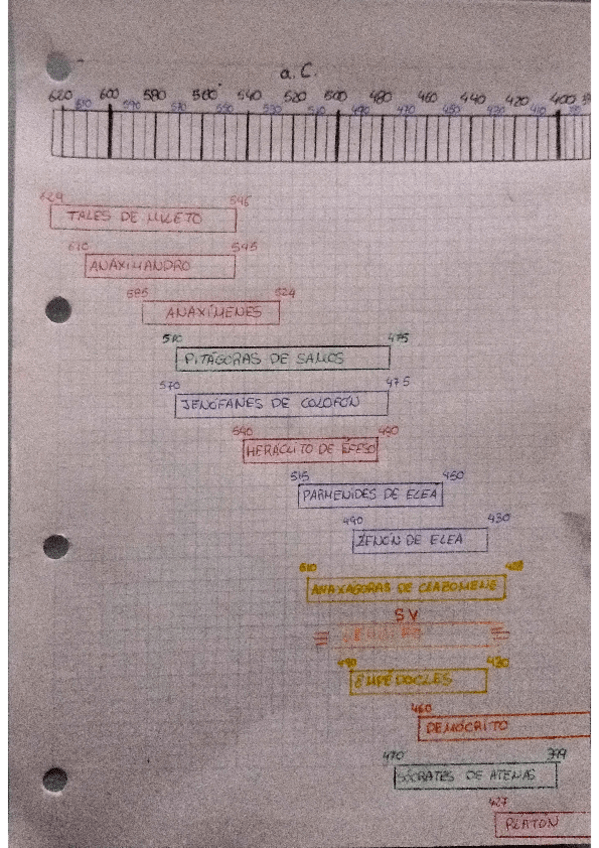 a. C.
620 600 580 560 540 520 500 480 460 440 420 400
610 590 570 550 530 510 490 470 450 430 410
624 546
TALES DE MILETO
610 545
ANAXIMANDRO
585 524
ANAXÍMENES
475
PITÁGORAS DE SAMOS
570 475
JENÓFANES DE COLOFÓN
540
HERÁCLITO DE ÉFESO
515 450
PARMENIDES DE ELEA
490 430
ZENÓN DE ELEA
ANAXÁGORAS DE CLAZOMENE
SV
490 430
EMPÉDOCLES
460
DEMÓCRITO
470 399
SÓCRATES DE ATENAS
427
PLATÓN